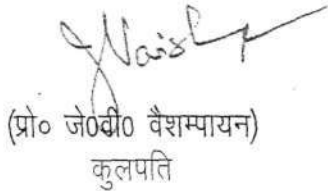 (प्रो० जे०वी० वैशम्पायन)
कुलपति